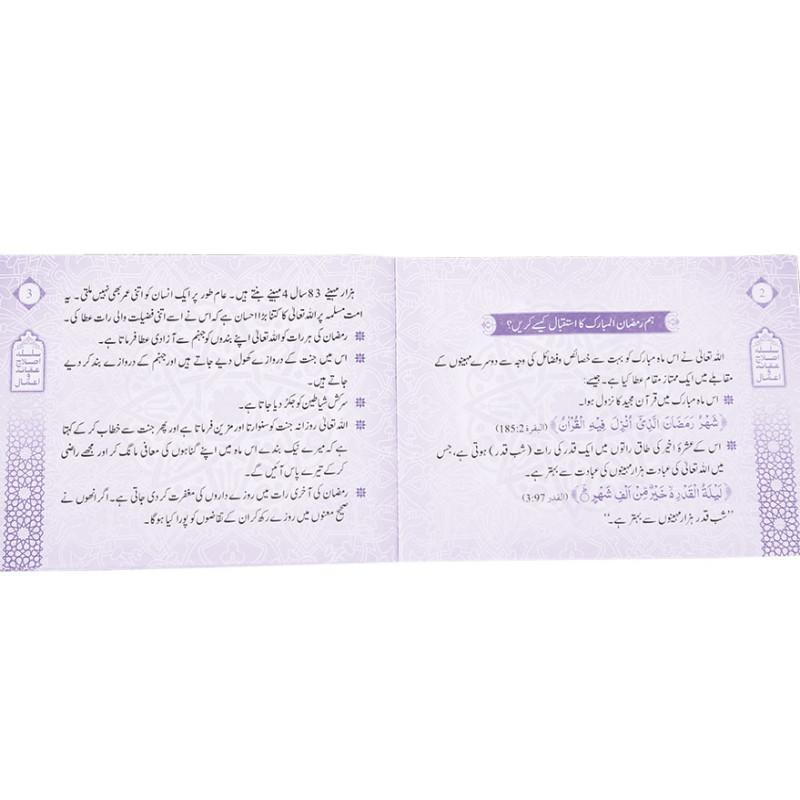 2
سلسلۂ
اصلاح
عقائد
و
اعمال
ہم رمضان المبارک کا استقبال کیسے کریں؟
اللہ تعالیٰ نے اس ماہ مبارک کو بہت سے خصائص و فضائل کی وجہ سے دوسرے مہینوں کے
مقابلے میں ایک ممتاز مقام عطا کیا ہے۔ جیسے:
اس ماہ مبارک میں قرآن مجید کا نزول ہوا۔
﴿شَهْرُ رَمَضَانَ الَّذِيْٓ اُنْزِلَ فِيْهِ الْقُرْاٰنُ﴾ (البقرۃ 185:2)
اس کے عشرۂ اخیر کی طاق راتوں میں ایک قدر کی رات (شب قدر) ہوتی ہے، جس
میں اللہ تعالیٰ کی عبادت ہزار مہینوں کی عبادت سے بہتر ہے۔
﴿لَيْلَةُ الْقَدْرِ ۙ خَيْرٌ مِّنْ اَلْفِ شَهْرٍ ۭ﴾ (القدر 3:97)
’’شب قدر ہزار مہینوں سے بہتر ہے۔‘‘
3
سلسلۂ
اصلاح
عقائد
و
اعمال
ہزار مہینے 83 سال 4 مہینے بنتے ہیں۔ عام طور پر ایک انسان کو اتنی عمر بھی نہیں ملتی۔ یہ
امت مسلمہ پر اللہ تعالیٰ کا کتنا بڑا احسان ہے کہ اس نے اسے اتنی فضیلت والی رات عطا کی۔
رمضان کی ہر رات کو اللہ تعالیٰ اپنے بندوں کو جہنم سے آزادی عطا فرماتا ہے۔
اس میں جنت کے دروازے کھول دیے جاتے ہیں اور جہنم کے دروازے بند کر دیے
جاتے ہیں۔
سرکش شیاطین کو جکڑ دیا جاتا ہے۔
اللہ تعالیٰ روزانہ جنت کو سنوارتا اور مزین فرماتا ہے اور پھر جنت سے خطاب کر کے کہتا
ہے کہ میرے نیک بندے اس ماہ میں اپنے گناہوں کی معافی مانگ کر اور مجھے راضی
کر کے تیرے پاس آئیں گے۔
رمضان کی آخری رات میں روزے داروں کی مغفرت کر دی جاتی ہے۔ اگر انھوں نے
صحیح معنوں میں روزے رکھ کر ان کے تقاضوں کو پورا کیا ہوگا۔